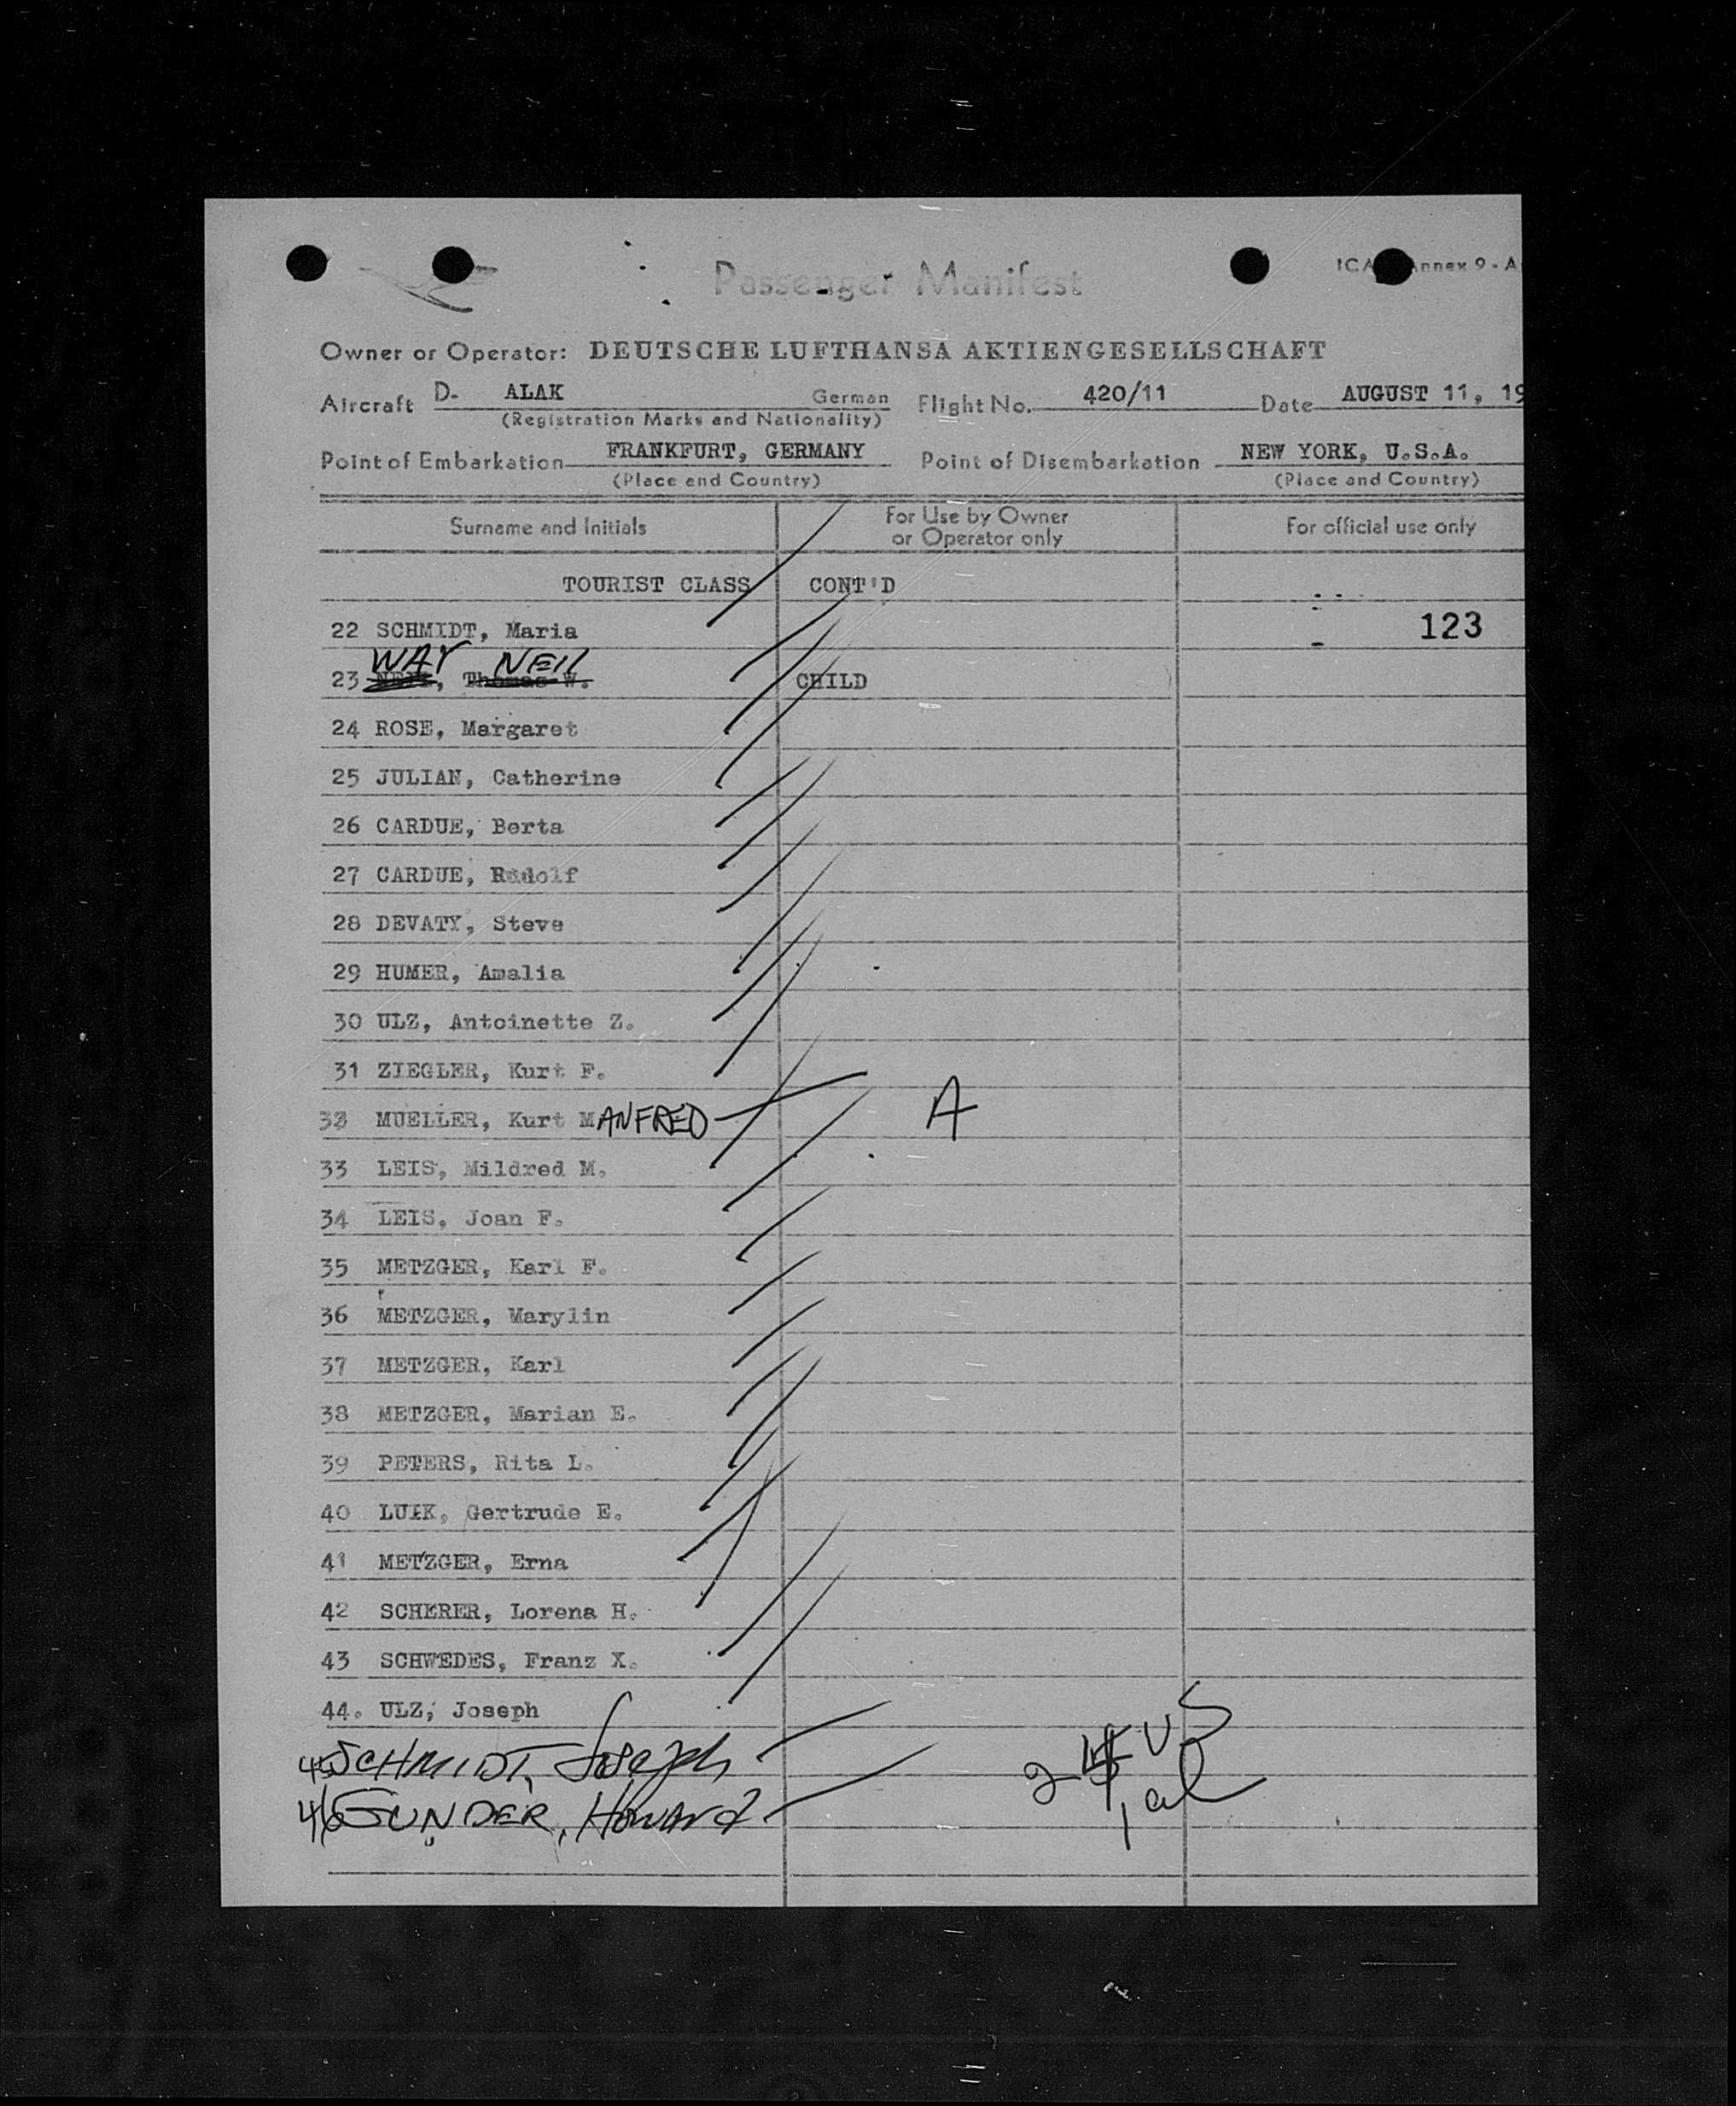 Passenger Manifest
Annex 9 - A
Owner or Operator: DEUTSCHE LUFTHANSA AKTIENGESELLSCHAFT
Aircraft D- ALAK German Flight No. 420/11 Date AUGUST 11, 19
(Registration Marks and Nationality)
Point of Embarkation FRANKFURT, GERMANY Point of Disembarkation NEW YORK, U.S.A.
(Place and Country) (Place and Country)
Surname and Initials For Use by Owner or Operator only For official use only
TOURIST CLASS CONT'D
22 SCHMIDT, Maria 123
WAY NEIL
23 NEIL, Thomas W. CHILD
24 ROSE, Margaret
25 JULIAN, Catherine
26 CARDUE, Berta
27 CARDUE, Rudolf
28 DEVATY, Steve
29 HUMER, Amalia
30 ULZ, Antoinette Z.
31 ZIEGLER, Kurt F.
32 MUELLER, Kurt MANFRED A
33 LEIS, Mildred M.
34 LEIS, Joan F.
35 METZGER, Karl F.
36 METZGER, Marylin
37 METZGER, Karl
38 METZGER, Marian E.
39 PETERS, Rita L.
40 LUIK, Gertrude E.
41 METZGER, Erna
42 SCHERER, Lorena H.
43 SCHWEDES, Franz X.
44. ULZ, Joseph
45 SCHMIDT, Joseph 24 US
46 GUNDER, Howard 1 al